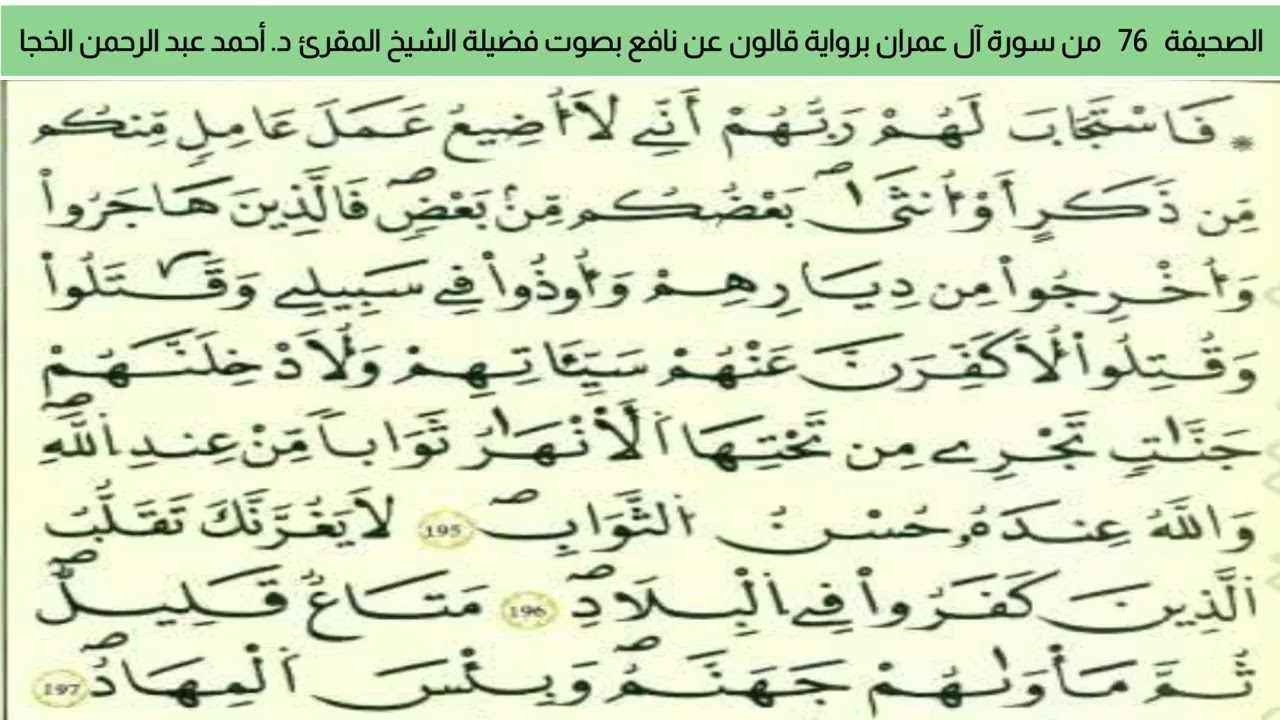 الصحيفة 76 من سورة آل عمران برواية قالون عن نافع بصوت فضيلة الشيخ المقرئ د. أحمد عبد الرحمن الخجا
* فَاسْتَجَابَ لَهُمْ رَبُّهُمْ أَنِّے لَا أُضِيعُ عَمَلَ عَامِلٍ مِّنكُم
مِّن ذَكَرٍ أَوْ أُنثَىٰ بَعْضُكُم مِّنۢ بَعْضٍ فَالَّذِينَ هَاجَرُواْ
وَأُخْرِجُواْ مِن دِيَارِهِمْ وَأُوذُواْ فِے سَبِيلِے وَقَٰتَلُواْ
وَقُتِلُواْ لَأُكَفِّرَنَّ عَنْهُمْ سَيِّـَٔاتِهِمْ وَلَأُدْخِلَنَّهُمْ
جَنَّٰتٍ تَجْرِے مِن تَحْتِهَا اَلْأَنْهَٰرُ ثَوَاباً مِّنْ عِندِ اِللَّهِ
وَاللَّهُ عِندَهُۥ حُسْنُ اُلثَّوَابِ 195 لَا يَغُرَّنَّكَ تَقَلُّبُ
اُلَّذِينَ كَفَرُواْ فِے اِلْبِلَادِ 196 مَتَاعٌ قَلِيلٌ
ثُمَّ مَأْوَىٰهُمْ جَهَنَّمُ وَبِئْسَ اَلْمِهَادُ 197